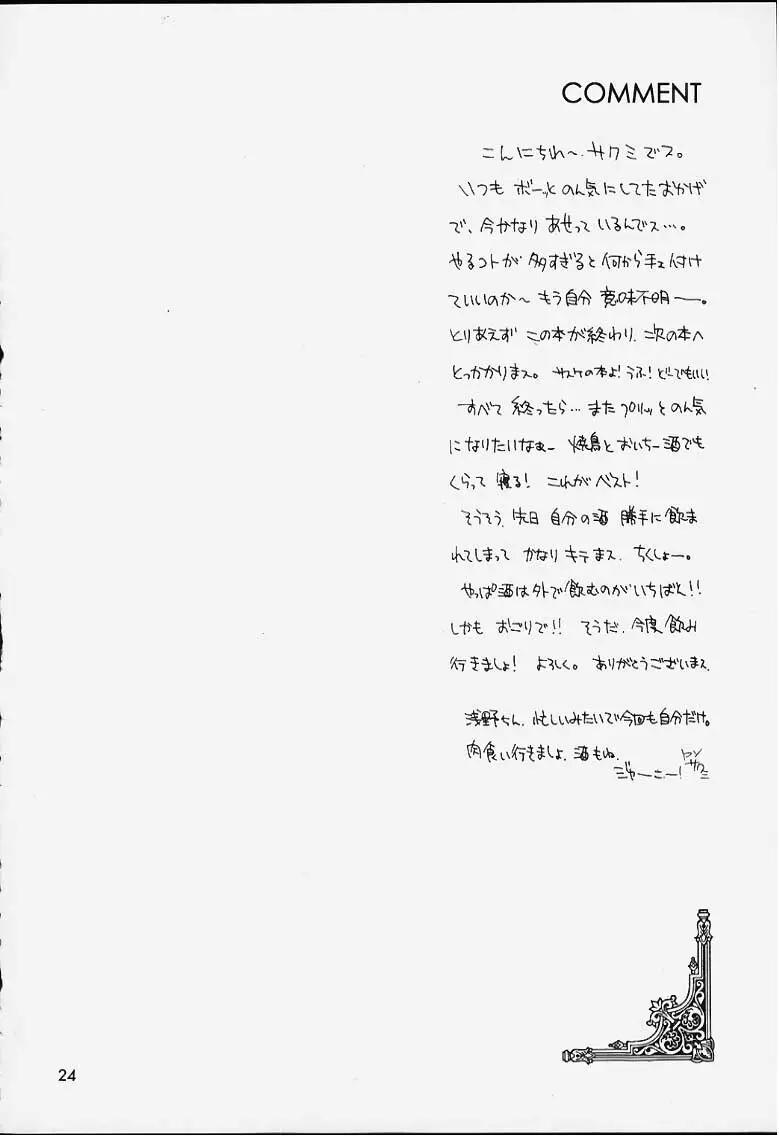 COMMENT
こんにちわ〜.サクミでス。
いつも ボーッと のん気にしてたおかげ
で、今かなり あせって いるんでス…。
やるコトが 多すぎると 何から手を付け
ていいのか〜 もう自分 意味不明ー。
とりあえず この本が終わり、次の本へ
とっかかりまス。 サスケの本よ!うふ!どーでもいい
すべて 終ったら… また プリッと のん気
になりたいなぁー 焼鳥と おいちー酒でも
くらって 寝る! これが ベスト!
そうそう、先日 自分の酒 勝手に飲ま
れてしまって かなり キテまス. ちくしょー。
やっぱ酒は外で飲むのがいちばん!!
しかも おごりで!! そうだ、今度飲み
行きましょ! よろしく。 ありがとうございまス.
浅野ちん、忙しいみたいで今回も自分だけ。
肉食い行きましょ、酒もね.
じゃーにー!
サクミ
24